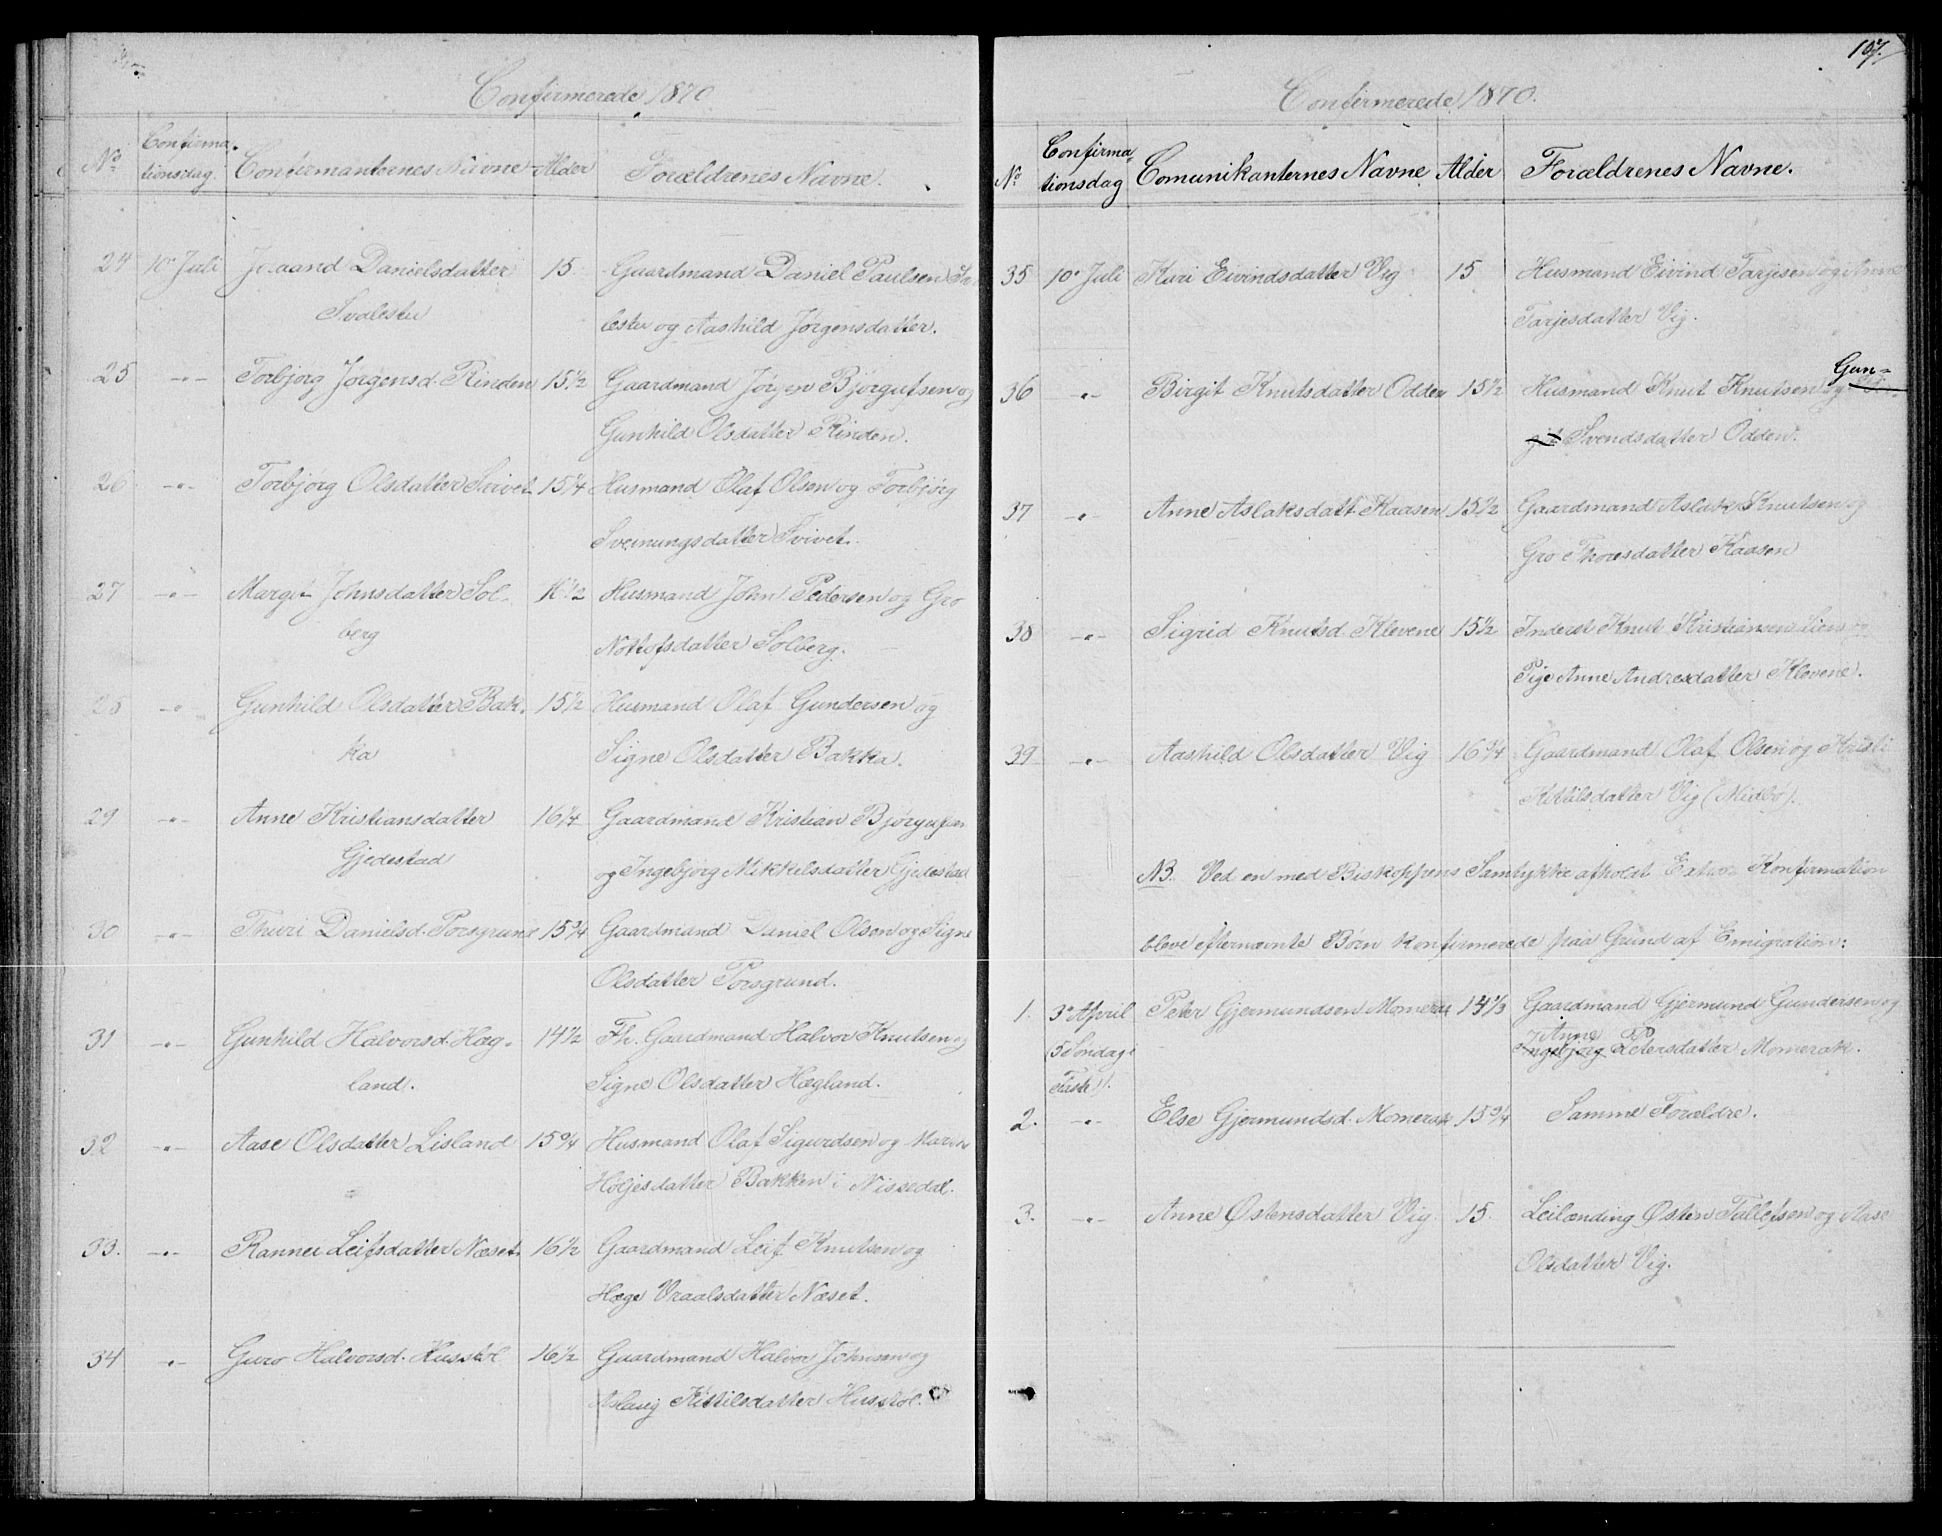 Confirmerede 1870
No Confirmationsdag Confirmanternes Navne Alder Forældrenes Navne.
24 10de Juli Danielsdatter 15 Gaardmand Daniel Paulsen
Svalestu lestu og Aashild Jørgensdatter.
25 -"- Torbjørg Jørgensd. Rinden 15 1/2 Gaardmand Jørgen Bjørgufsen og
Gunhild Olsdatter Rinden.
26 -"- Torbjørg Olsdatter Svivet 15 1/4 Husmand Olaf Olsen og Torbjørg
Sveinungsdatter Svivet.
27 -"- Margit Johnsdatter Sol- 16 1/2 Husmand John Pedersen og Gro
berg Nottofsdatter Solberg.
28 -"- Gunhild Olsdatter Bak- 15 1/2 Husmand Olaf Gundersen og
ka Signe Olsdatter Bakka.
29 -"- Anne Kristiansdatter 16 1/4 Gaardmand Kristian Bjørgufsen
Gjedestad og Ingebjørg Mikkelsdatter Gjedestad
30 -"- Thuri Danielsd. Porsgrund 15 3/4 Gaardmand Daniel Olsen og Signe
Olsdatter Porsgrund.
31 -"- Gunhild Halvorsd. Hæg- 14 1/2 Fh. Gaardmand Halvor Knutsen og
land. Signe Olsdatter Hægland.
32 -"- Aase Olsdatter Lisland 15 3/4 Husmand Olaf Sigurdsen og
Høljesdatter Bakken i Nissedal.
33. -"- Rannei Leifsdatter Næset 16 1/2 Gaardmand Leif Knutsen og
Hæge Vraalsdatter Næset.
34 -"- Guro Halvorsd. Husstøl 16 1/2 Gaardmand Halvor Johnsen og
Aslaug Kittilsdatter Husstøl.
107.
Confirmerede 1870.
No Confirmationsdag Comunikanternes Navne Alder Forældrenes Navne.
35 10de Juli Kari Eivindsdatter Vig 15 Husmand Eivind Tarjesen og Anne
Tarjesdatter Vig.
36 -"- Birgit Knutsdatter Odden 15 1/2 Husmand Knut Knutsen og Gun-
Svendsdatter Odden.
37 -"- Anne Aslaksdatt. Kaasen 15 1/2 Gaardmand Aslak Knutsen og
Gro Thoresdatter Kaasen
38 -"- Sigrid Knutsd. Klevene 15 1/2 Inderst Knut Kristiansen Lien og
Pige Anne Andresdatter Klevene.
39 -"- Aashild Olsdatter Vig 16 3/4 Gaardmand Olaf Olsen og Kristi
Kittilsdatter Vig (Midbø).
NB. Ved en med Biskoppens Samtykke afholdt Extra Konfirmation
bleve efternævnte Børn konfirmerede paa Grund af Emigration:
1. 3de April Peter Gjermundsen Momrak 14 1/3 Gaardmand Gjermund Gundersen og
(5 Søndag i Anne
Faste). Ingebjørg Petersdatter Momrak.
2. -"- Else Gjermundsd. Momrak 15 3/4 Samme Forældre.
3. -"- Anne Østensdatter Vig 15. Leilænding Østen Tallefsen og Aase
Olsdatter Vig.